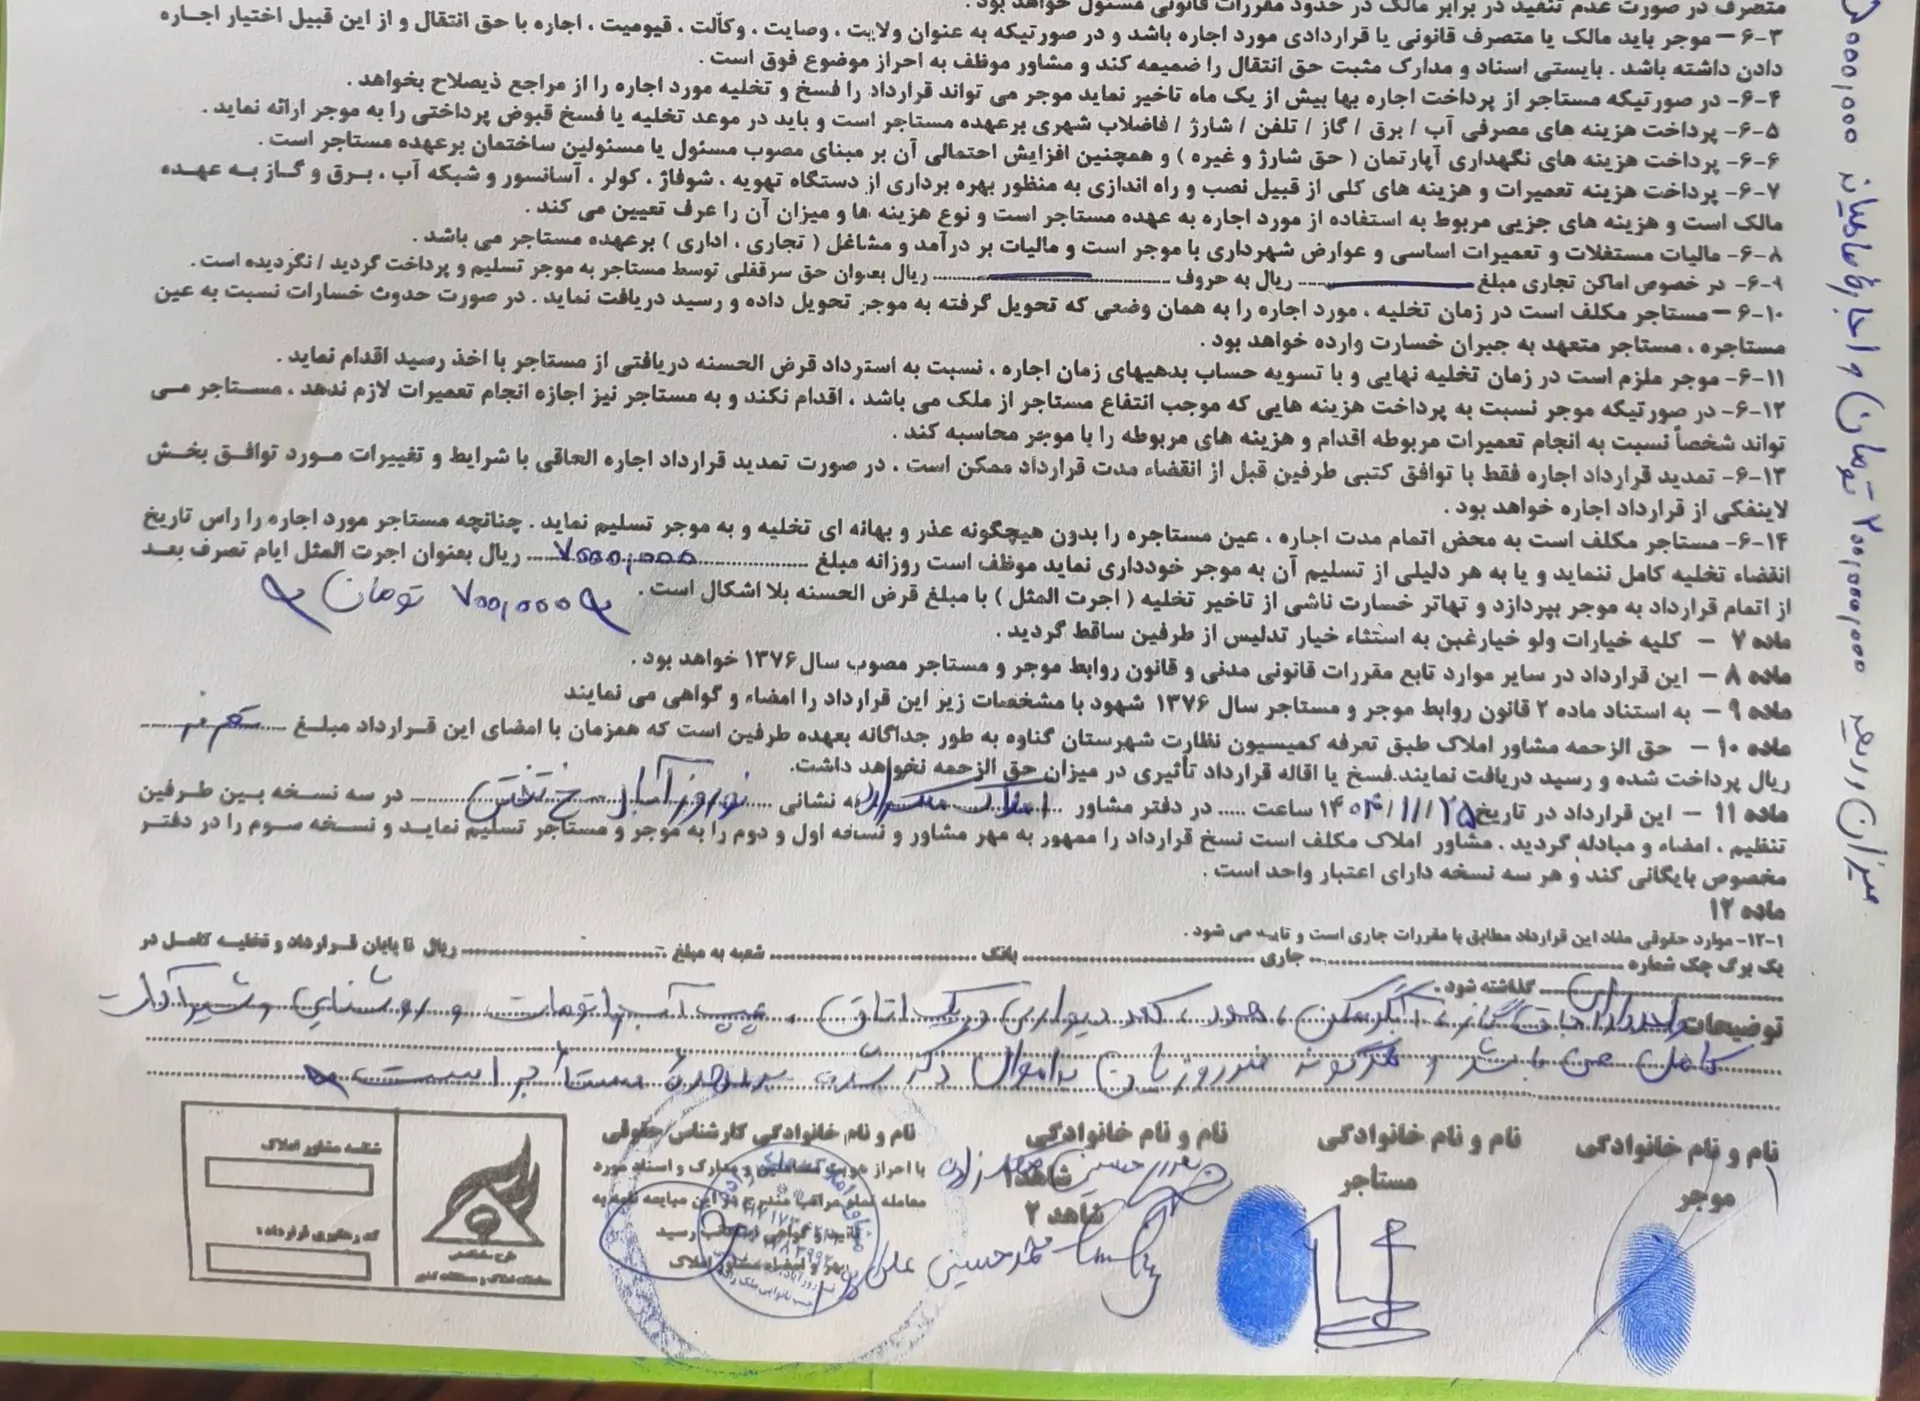 متصرف در صورت عدم تنفیذ در برابر مالک در حدود مقررات قانونی مسئول خواهد بود .
۶-۳ – موجر باید مالک یا متصرف قانونی یا قراردادی مورد اجاره باشد و در صورتیکه به عنوان ولایت ، وصایت ، وکالت ، قیومیت ، اجاره با حق انتقال و از این قبیل اختیار اجاره
دادن داشته باشد . بایستی اسناد و مدارک مثبت حق انتقال را ضمیمه کند و مشاور موظف به احراز موضوع فوق است .
۶-۴- در صورتیکه مستاجر از پرداخت اجاره بها بیش از یک ماه تاخیر نماید موجر می تواند قرارداد را فسخ و تخلیه مورد اجاره را از مراجع ذیصلاح بخواهد .
۶-۵- پرداخت هزینه های مصرفی آب / برق / گاز / تلفن / شارژ / فاضلاب شهری برعهده مستاجر است و باید در موعد تخلیه یا فسخ قبوض پرداختی را به موجر ارائه نماید .
۶-۶- پرداخت هزینه های نگهداری آپارتمان ( حق شارژ و غیره ) و همچنین افزایش احتمالی آن بر مبنای مصوب مسئول یا مسئولین ساختمان برعهده مستاجر است .
۶-۷- پرداخت هزینه تعمیرات و هزینه های کلی از قبیل نصب و راه اندازی به منظور بهره برداری از دستگاه تهویه ، شوفاژ ، کولر ، آسانسور و شبکه آب ، برق و گاز به عهده
مالک است و هزینه های جزیی مربوط به استفاده از مورد اجاره به عهده مستاجر است و نوع هزینه ها و میزان آن را عرف تعیین می کند .
۶-۸- مالیات مستغلات و تعمیرات اساسی و عوارض شهرداری با موجر است و مالیات بر درآمد و مشاغل ( تجاری ، اداری ) برعهده مستاجر می باشد .
۶-۹- در خصوص اماکن تجاری مبلغ ........ ریال به حروف ........ ریال بعنوان حق سرقفلی توسط مستاجر به موجر تسلیم و پرداخت گردید / نگردیده است .
۶-۱۰ – مستاجر مکلف است در زمان تخلیه ، مورد اجاره را به همان وضعی که تحویل گرفته به موجر تحویل داده و رسید دریافت نماید . در صورت حدوث خسارات نسبت به عین
مستاجره ، مستاجر متعهد به جبران خسارت وارده خواهد بود .
۶-۱۱- موجر ملزم است در زمان تخلیه نهایی و با تسویه حساب بدهیهای زمان اجاره ، نسبت به استرداد قرض الحسنه دریافتی از مستاجر با اخذ رسید اقدام نماید .
۶-۱۲- در صورتیکه موجر نسبت به پرداخت هزینه هایی که موجب انتفاع مستاجر از ملک می باشد ، اقدام نکند و به مستاجر نیز اجازه انجام تعمیرات لازم ندهد ، مستاجر می
تواند شخصاً نسبت به انجام تعمیرات مربوطه اقدام و هزینه های مربوطه را با موجر محاسبه کند .
۶-۱۳- تمدید قرارداد اجاره فقط با توافق کتبی طرفین قبل از انقضاء مدت قرارداد ممکن است ، در صورت تمدید قرارداد اجاره الحاقی با شرایط و تغییرات مورد توافق بخش
لاینفکی از قرارداد اجاره خواهد بود .
۶-۱۴- مستاجر مکلف است به محض اتمام مدت اجاره ، عین مستاجره را بدون هیچگونه عذر و بهانه ای تخلیه و به موجر تسلیم نماید . چنانچه مستاجر مورد اجاره را راس تاریخ
انقضاء تخلیه کامل ننماید و یا به هر دلیلی از تسلیم آن به موجر خودداری نماید موظف است روزانه مبلغ ........ ۷۰۰۰,۰۰۰ ........ ریال بعنوان اجرت المثل ایام تصرف بعد
از اتمام قرارداد به موجر بپردازد و تهاتر خسارت ناشی از تاخیر تخلیه ( اجرت المثل ) با مبلغ قرض الحسنه بلا اشکال است .
۷۰۰,۰۰۰ تومان
ماده ۷ – کلیه خیارات ولو خیارغبن به استثناء خیار تدلیس از طرفین ساقط گردید .
ماده ۸ – این قرارداد در سایر موارد تابع مقررات قانونی مدنی و قانون روابط موجر و مستاجر مصوب سال ۱۳۷۶ خواهد بود .
ماده ۹ – به استناد ماده ۲ قانون روابط موجر و مستاجر سال ۱۳۷۶ شهود با مشخصات زیر این قرارداد را امضاء و گواهی می نمایند
ماده ۱۰ – حق الزحمه مشاور املاک طبق تعرفه کمیسیون نظارت شهرستان گناوه به طور جداگانه بعهده طرفین است که همزمان با امضای این قرارداد مبلغ ........
ریال پرداخت شده و رسید دریافت نمایند.فسخ یا اقاله قرارداد تأثیری در میزان حق الزحمه نخواهد داشت.
ماده ۱۱ – این قرارداد در تاریخ ۱۴۰۴/۱۱/۲۵ ساعت ..... در دفتر مشاور املاک به نشانی نوروزآباد در سه نسخه بین طرفین
تنظیم ، امضاء و مبادله گردید . مشاور املاک مکلف است نسخ قرارداد را ممهور به مهر مشاور و نسخه اول و دوم را به موجر و مستاجر تسلیم نماید و نسخه سوم را در دفتر
مخصوص بایگانی کند و هر سه نسخه دارای اعتبار واحد است .
ماده ۱۲
۱۲-۱- موارد حقوقی مفاد این قرارداد مطابق با مقررات جاری است و تایید می شود .
یک برگ چک شماره ........ جاری ........ بانک ........ شعبه به مبلغ ........ ریال تا پایان قرارداد و تخلیه کامل در
........ گذاشته شود .
توضیحات واحد دارای اجاق گاز ، آبگرمکن ، هود ، کمد دیواری و یک اتاق ، پمپ آب اتومات و روشنایی و شیرآلات
کامل می باشد و هرگونه ضرر و زیان به اموال ذکر شده برعهده مستأجر است
نام و نام خانوادگی
موجر
نام و نام خانوادگی
مستاجر
نام و نام خانوادگی
شاهد ۱
شاهد ۲
محمدحسین
نام و نام خانوادگی کارشناس حقوقی
با احراز هویت متعاملین و مدارک و اسناد مورد
معامله تمام مراتب مندرج در این مبایعه نامه به
تایید و گواهی اینجانب رسید
مهر و امضاء مشاور املاک
شناسه مشاور املاک
کد رهگیری قرارداد :
معاملات املاک و مستغلات کشور
میزان ودیعه ۲۰۰,۰۰۰,۰۰۰ تومان و اجاره ماهیانه